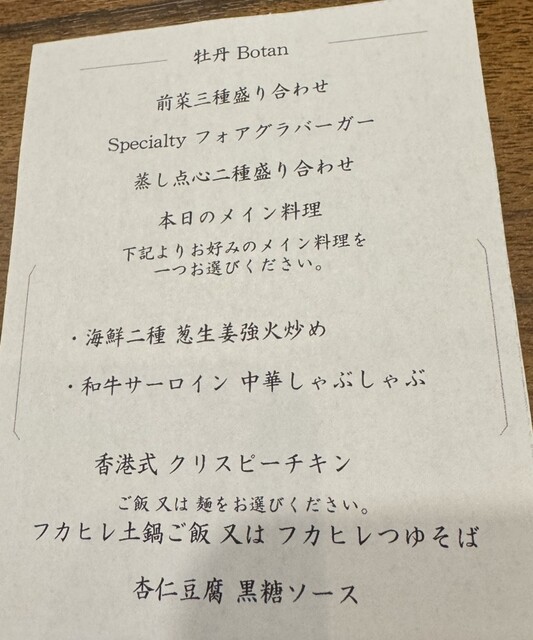 牡丹 Botan
前菜三種盛り合わせ
Specialty フォアグラバーガー
蒸し点心二種盛り合わせ
本日のメイン料理
下記よりお好みのメイン料理を
一つお選びください。
・海鮮二種 葱生姜強火炒め
・和牛サーロイン 中華しゃぶしゃぶ
香港式 クリスピーチキン
ご飯 又は 麺をお選びください。
フカヒレ土鍋ご飯 又は フカヒレつゆそば
杏仁豆腐 黒糖ソース